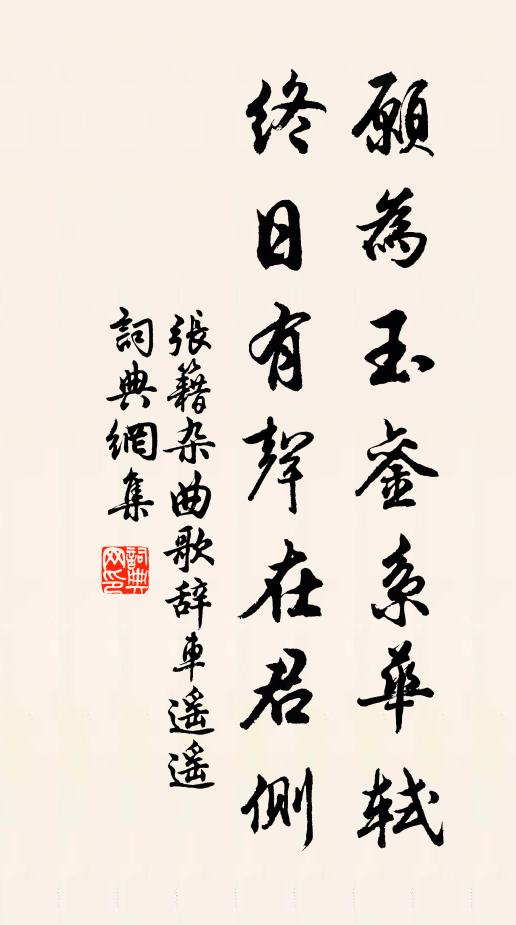 願為玉銮系華軾
終日有聲在君側
張籍杂曲歌辞車遥遥
詞典網集
詞典网印